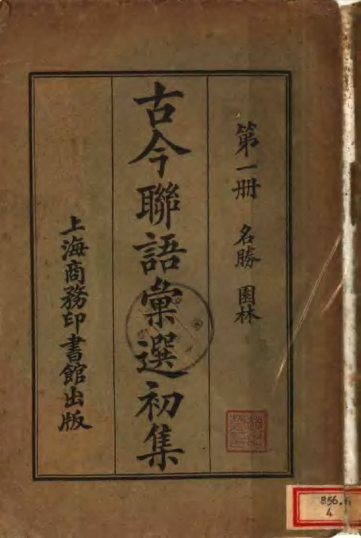 第一册 名勝 園林
古今聯語彙選初集
上海商務印書館出版
856.6
4